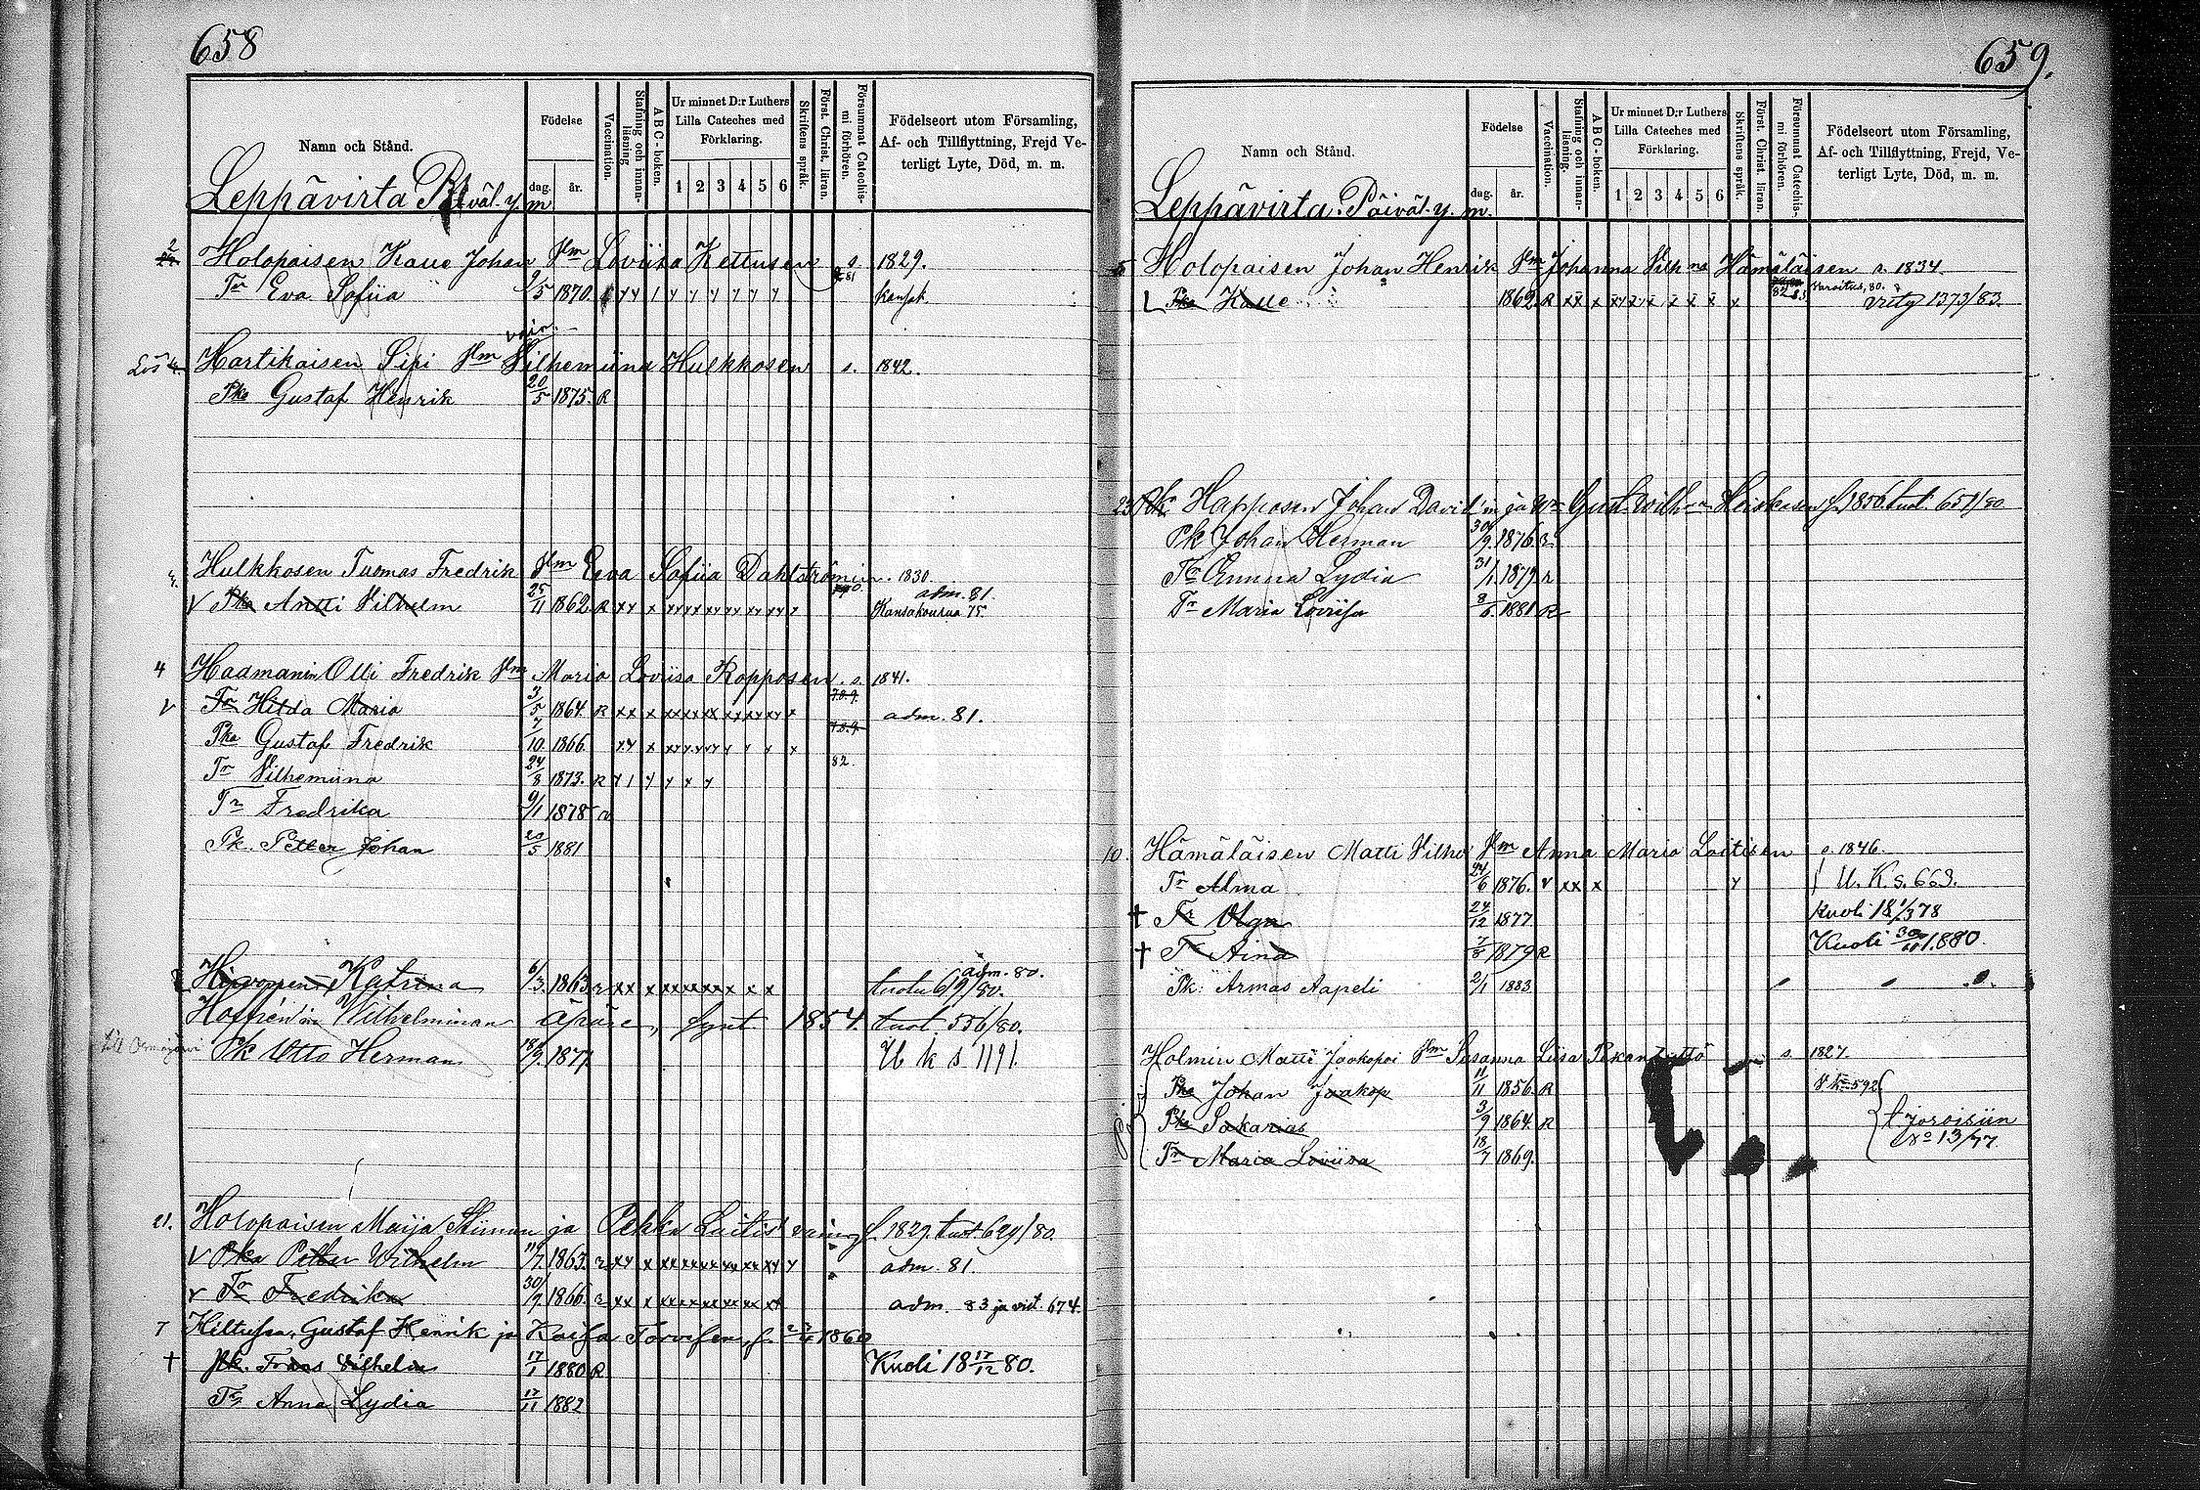 658
Namn och Stånd.
Födelse
dag. år.
Vaccination.
Stafning och innan-läsning
ABC-boken.
Ur minnet D:r Luthers Lilla Cateches med Förklaring.
1 2 3 4 5 6
Skriftens språk.
Först. Christ. läran.
Försummat Catechis-mi förhören.
Födelseort utom Församling,
Af- och Tillflyttning, Frejd Ve-
terligt Lyte, Död, m. m.
Leppävirta Päiväl. y. m
2 Holopaisen Kalle Johan Vm Loviisa Kettusen s. 1829.
Tr Eva Sofiia 9/5 1870
vain.
Hartikaisen Sipi Vm Vilhemiina Hulkkosen s. 1842.
Pka Gustaf Henrik 20/5 1875. R
Hulkkosen Tuomas Fredrik Vm Eva Sofiia Dahlströmin s. 1830.
V Pka Antti Vilhelm 25/11 1862. R xx x xx xx xx xx xx xx x adm. 81.
Kansakoulua 75.
4 Haamanin Olli Fredrik Vm Maria Loviisa Ropposen s. 1841.
V Tr Hilda Maria 3/5 1864. R xx x xx xx xx xx xx xx x adm. 81.
Pka Gustaf Fredrik 7/10 1866.
82.
Tr Vilhemiina 24/8 1873. R
Tr Fredrika 9/1 1878
Pk. Petter Johan 20/5 1881
Hirvonen Katriina 6/3 1863 adm. 80.
tuotu 619/80.
Hoffrén'in Wilhelminan äpäre, synt 1854. tuot. 556/80.
Pk Otto Herman 18/9 1877. U k s 1191.
21. Holopaisen Maija Stiinan ja Pekka Laitis' vaimo f. 1829. tuot 629/80.
V Pka Petter Wilhelm 1863. adm. 81.
V Tr Fredrika 30/9 1866. adm. 83 ja vit. 674.
7 Hiltusen, Gustaf Henrik ja Kaisa Torvisen, f. 1860
† Pk. Frans Vilhelm 17/1 1880 R Kuoli 18 17/12 80.
Tr Anna Lydia 17/11 1882
659.
Namn och Stånd.
Födelse
dag. år.
Vaccination.
Stafning och innan-läsning.
ABC-boken.
Ur minnet D:r Luthers Lilla Cateches med Förklaring.
1 2 3 4 5 6
Skriftens språk.
Först. Christ. läran.
Försummat Catechis-mi förhören.
Födelseort utom Församling,
Af- och Tillflyttning, Frejd, Ve-
terligt Lyte, Död, m. m.
Leppävirta Päiväl. y. m.
5 Holopaisen Johan Henrik Vm Johanna Vilh na Hämäläisen s. 1834.
Pka Kalle 1862 R varoitus, 80.
1373/83.
23 Happosen Johan David'in ja Vm Gust. Wilh na Heiskasen f. 1856. tuot. 651/80
Pk Johan Herman 30/9 1876
Tr Emma Lydia 31/1 1879. R
Tr Maria Loviisa 8/6 1881 R
10. Hämäläisen Matti Vilho Vm Anna Maria Laitisen s. 1846.
Tr Alma 24/6 1876. v xx x U. K. s. 663.
† Tr Olga 24/12 1877 Kuoli 18 1/3 78
† Tr Aina 7/8 1879 R Kuoli 1880.
Pk: Armas Aapeli 2/1 1883
Holmin Matti Jaakopoi Vm Susanna Liisa s. 1827.
Pka Johan Jaakop 11/11 1856. R
Pka Sakarias 3/9 1864. R t. Joroisiin
No 13/77.
Tr Maria Loviisa 18/7 1869.